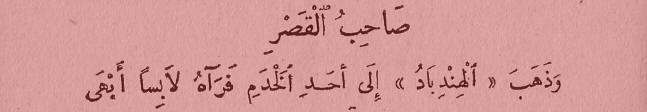 صَاحِبُ ٱلْقَصْرِ
وَذَهَبَ « ٱلْهِنْدِبَادُ » إِلَى أَحَدِ ٱلْخَدَمِ فَرَآهُ لَابِساً أَبْهَى